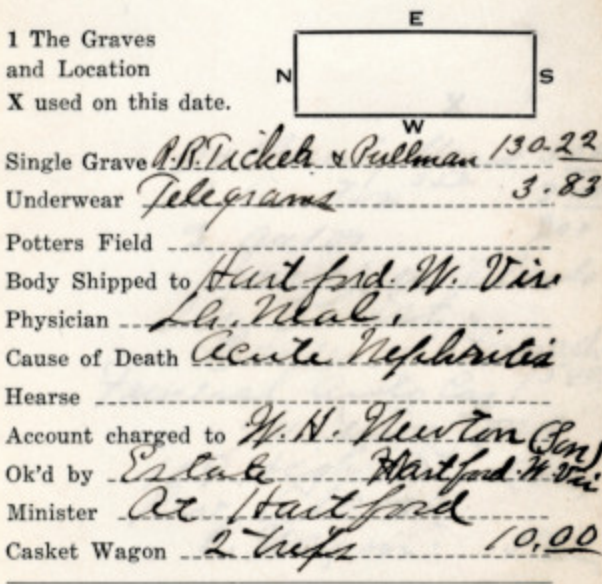 E
1 The Graves
and Location
X used on this date.
N S
W
Single Grave R.R. Tickets & Pullman 130.22
Underwear Telegrams 3.83
Potters Field
Body Shipped to Hartford. W. Vir.
Physician Dr. Neal.
Cause of Death Acute Nephritis
Hearse
Account charged to W. H. Newton (Son)
Ok'd by Estate Hartford W. Vir
Minister At Hartford
Casket Wagon 2 trips 10.00